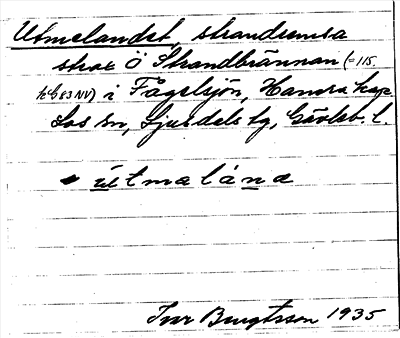 Utmelandet, strandremsa
strax Ö Strandbrännan (=115.
63 NV) i Fågelsjön, Hamra kap.
Los sn, Ljusdals tg, Gävleb. l.
útmalána
Ivar Bengtsson 1935